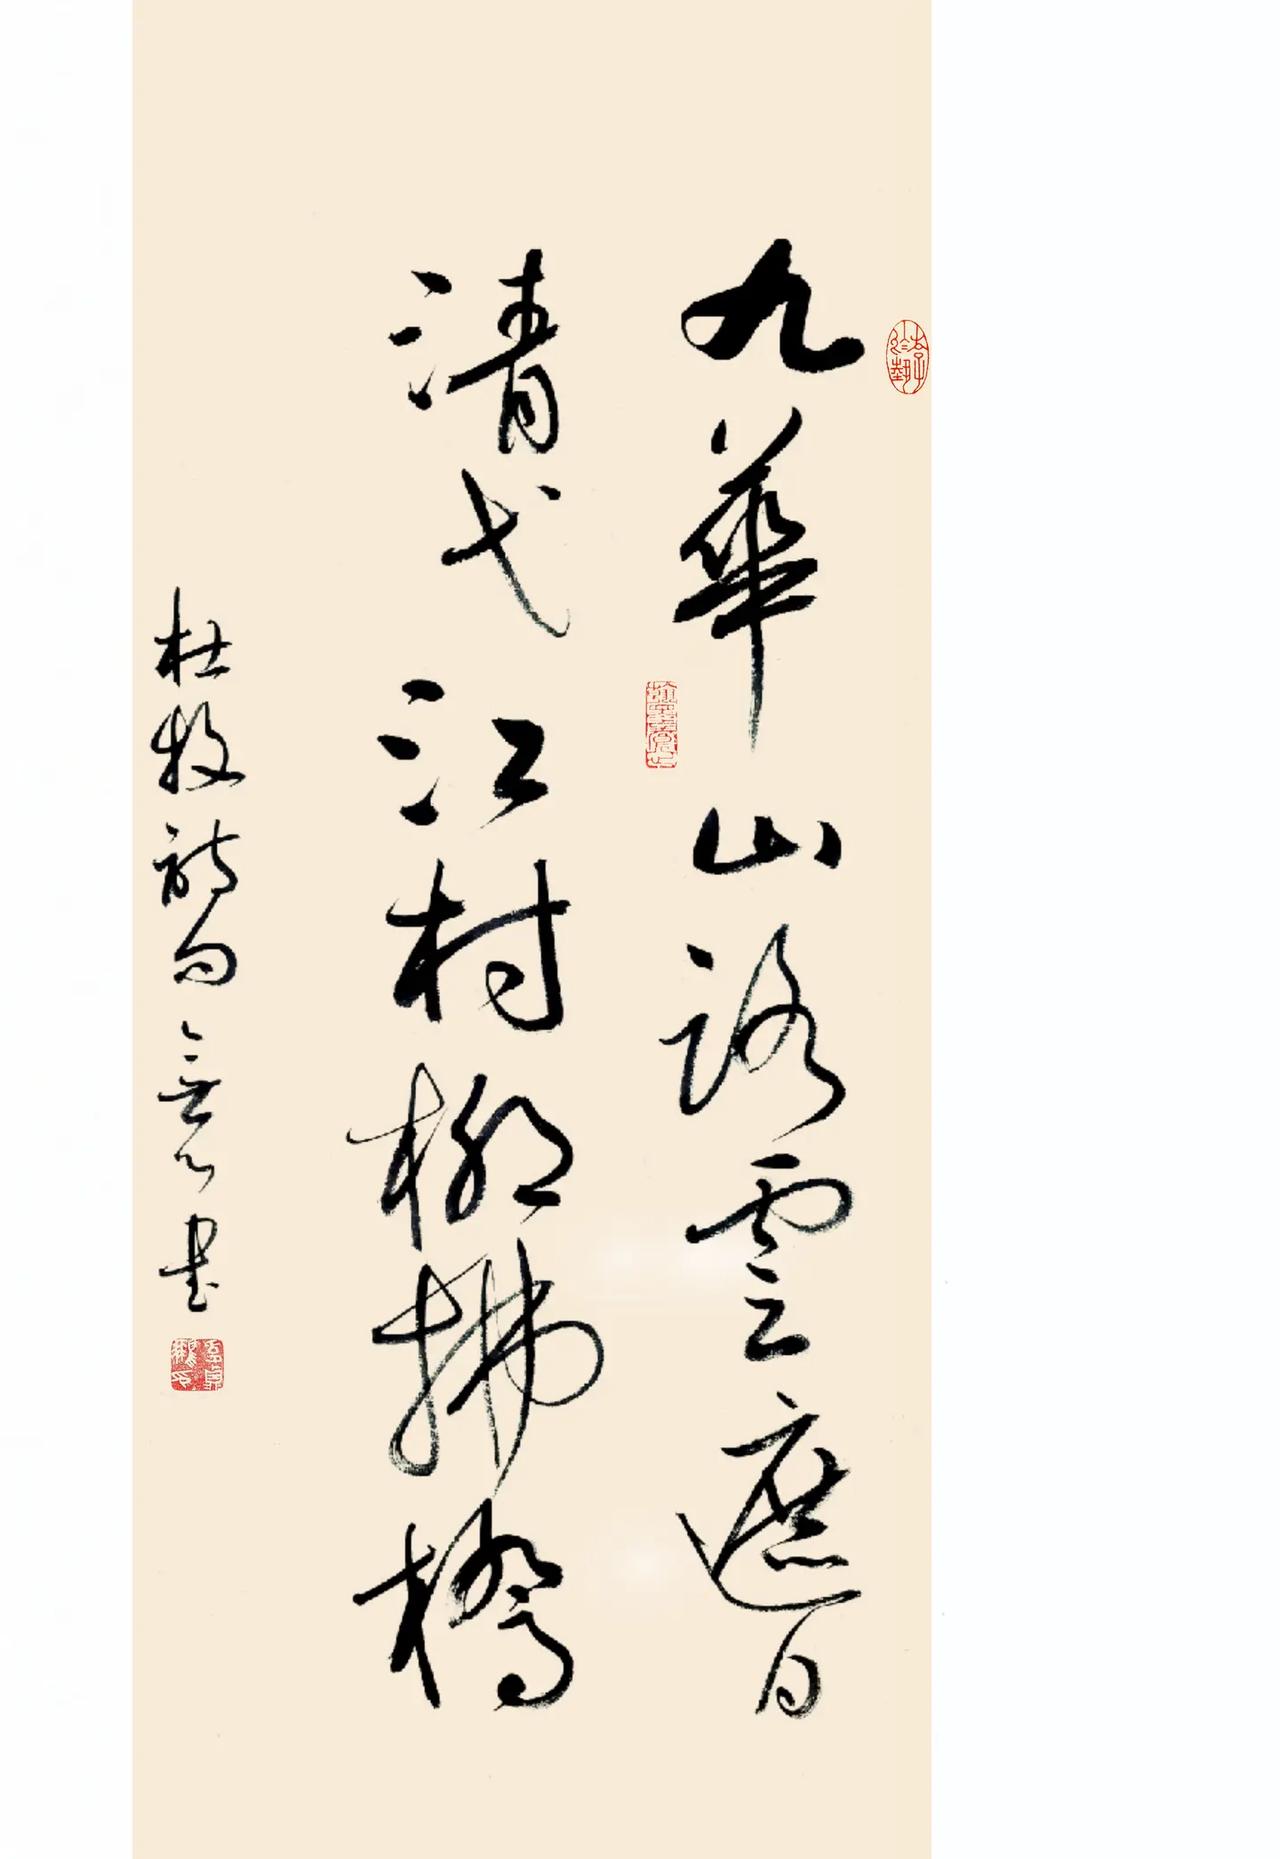 九華山路雲遮日
清弋江村柳拂橋
杜牧詩句 書